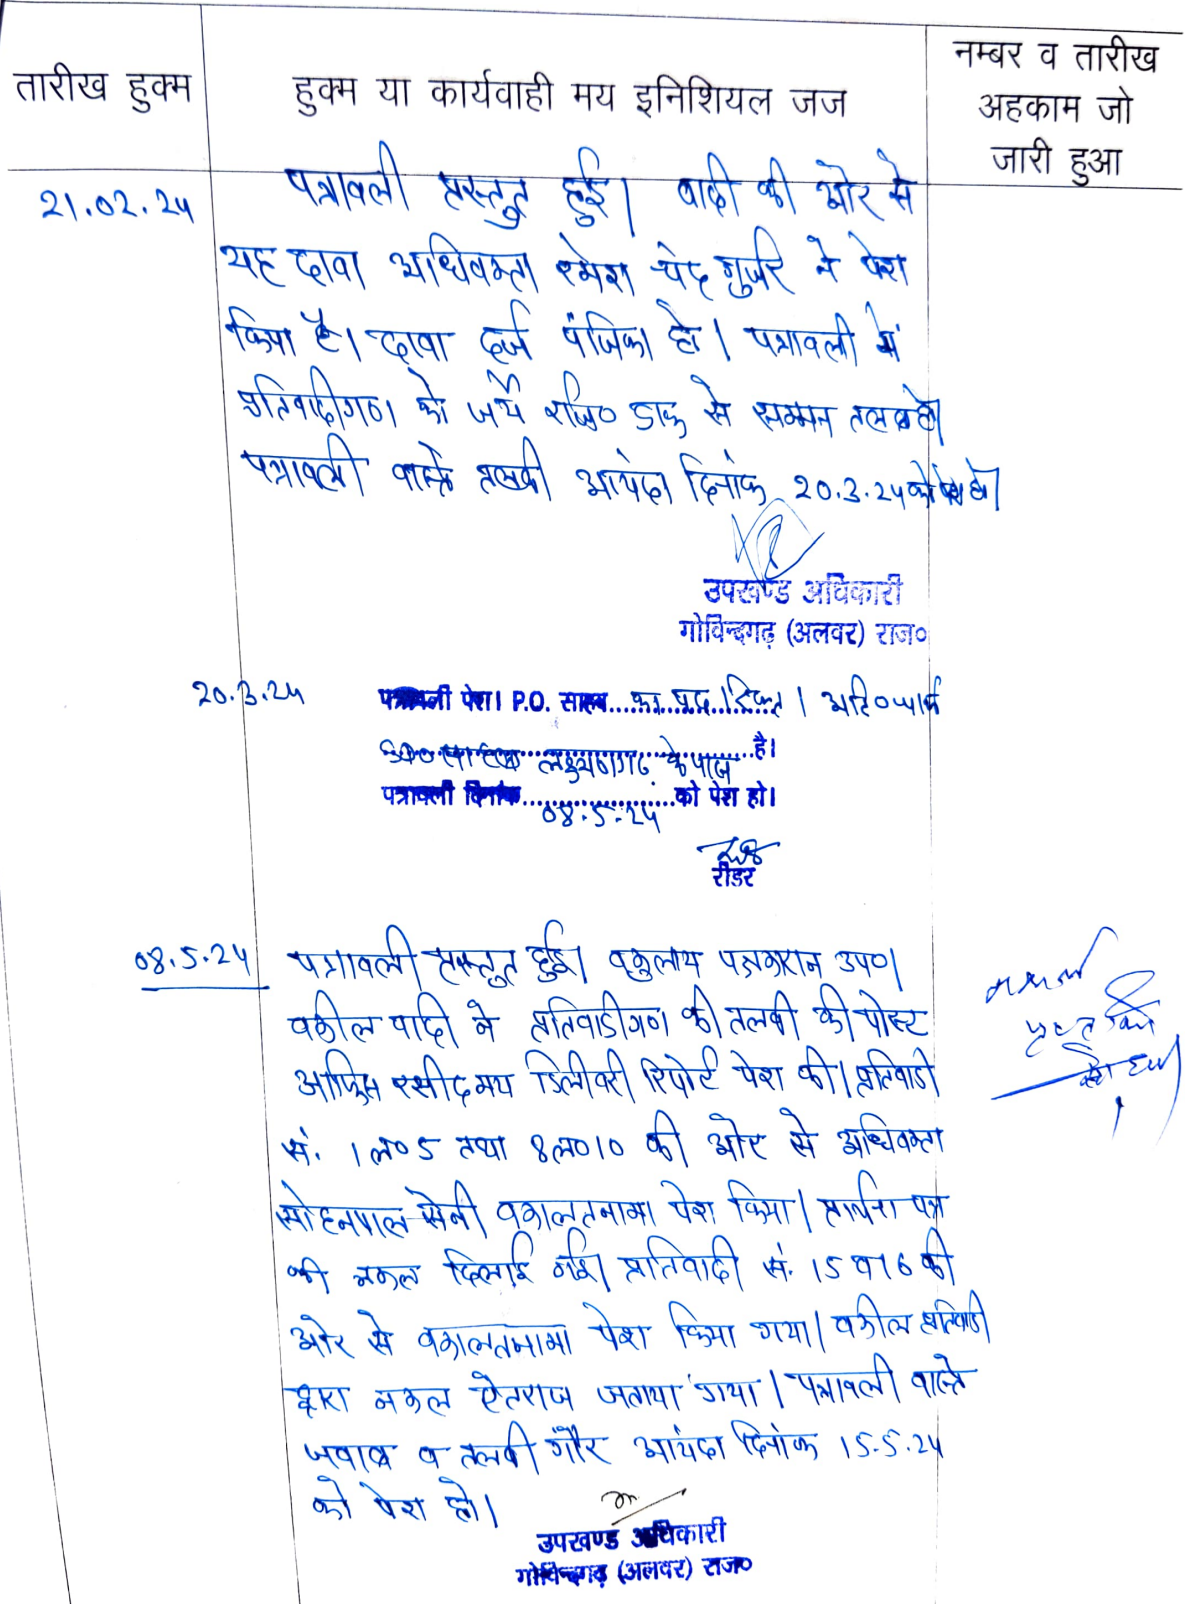 तारीख हुक्म
हुक्म या कार्यवाही मय इनिशियल जज
नम्बर व तारीख
अहकाम जो
जारी हुआ
21.02.24
पत्रावली प्रस्तुत हुई। वादी की ओर से
यह दावा अधिवक्ता रमेश चंद गुर्जर ने पेश
किया है। दावा दर्ज पंजिका हो। पत्रावली में
प्रतिवादीगण को जर्ये रजि० डाक से सम्मन तलब हो।
पत्रावली वास्ते तलबी आयंदा दिनांक 20.3.24 को पेश हो।
उपखण्ड अधिकारी
गोविन्दगढ़ (अलवर) राज०
20.3.24
पत्रावली पेश। P.O. साहब का पद रिक्त। अति० चार्ज
उ०अ० साहब लक्ष्मणगढ़ के पास है।
पत्रावली दिनांक 08.5.24 को पेश हो।
रीडर
08.5.24
पत्रावली प्रस्तुत हुई। वकुलाय पक्षकारान उप०।
वकील वादी ने प्रतिवादीगण की तलबी की पोस्ट
आफिस रसीद मय डिलीवरी रिपोर्ट पेश की। प्रतिवादी
सं. 1 ल० 5 तथा 8 ल० 10 की ओर से अधिवक्ता
सोहनपाल सैनी वकालतनामा पेश किया। प्रार्थना पत्र
की नकल दिलाई गई। प्रतिवादी सं. 15 व 16 की
ओर से वकालतनामा पेश किया गया। वकील प्रतिवादी
द्वारा नकल ऐतराज जताया गया। पत्रावली वास्ते
जवाब व तलबी गौर आयंदा दिनांक 15.5.24
को पेश हो।
उपखण्ड अधिकारी
गोविन्दगढ़ (अलवर) राज०